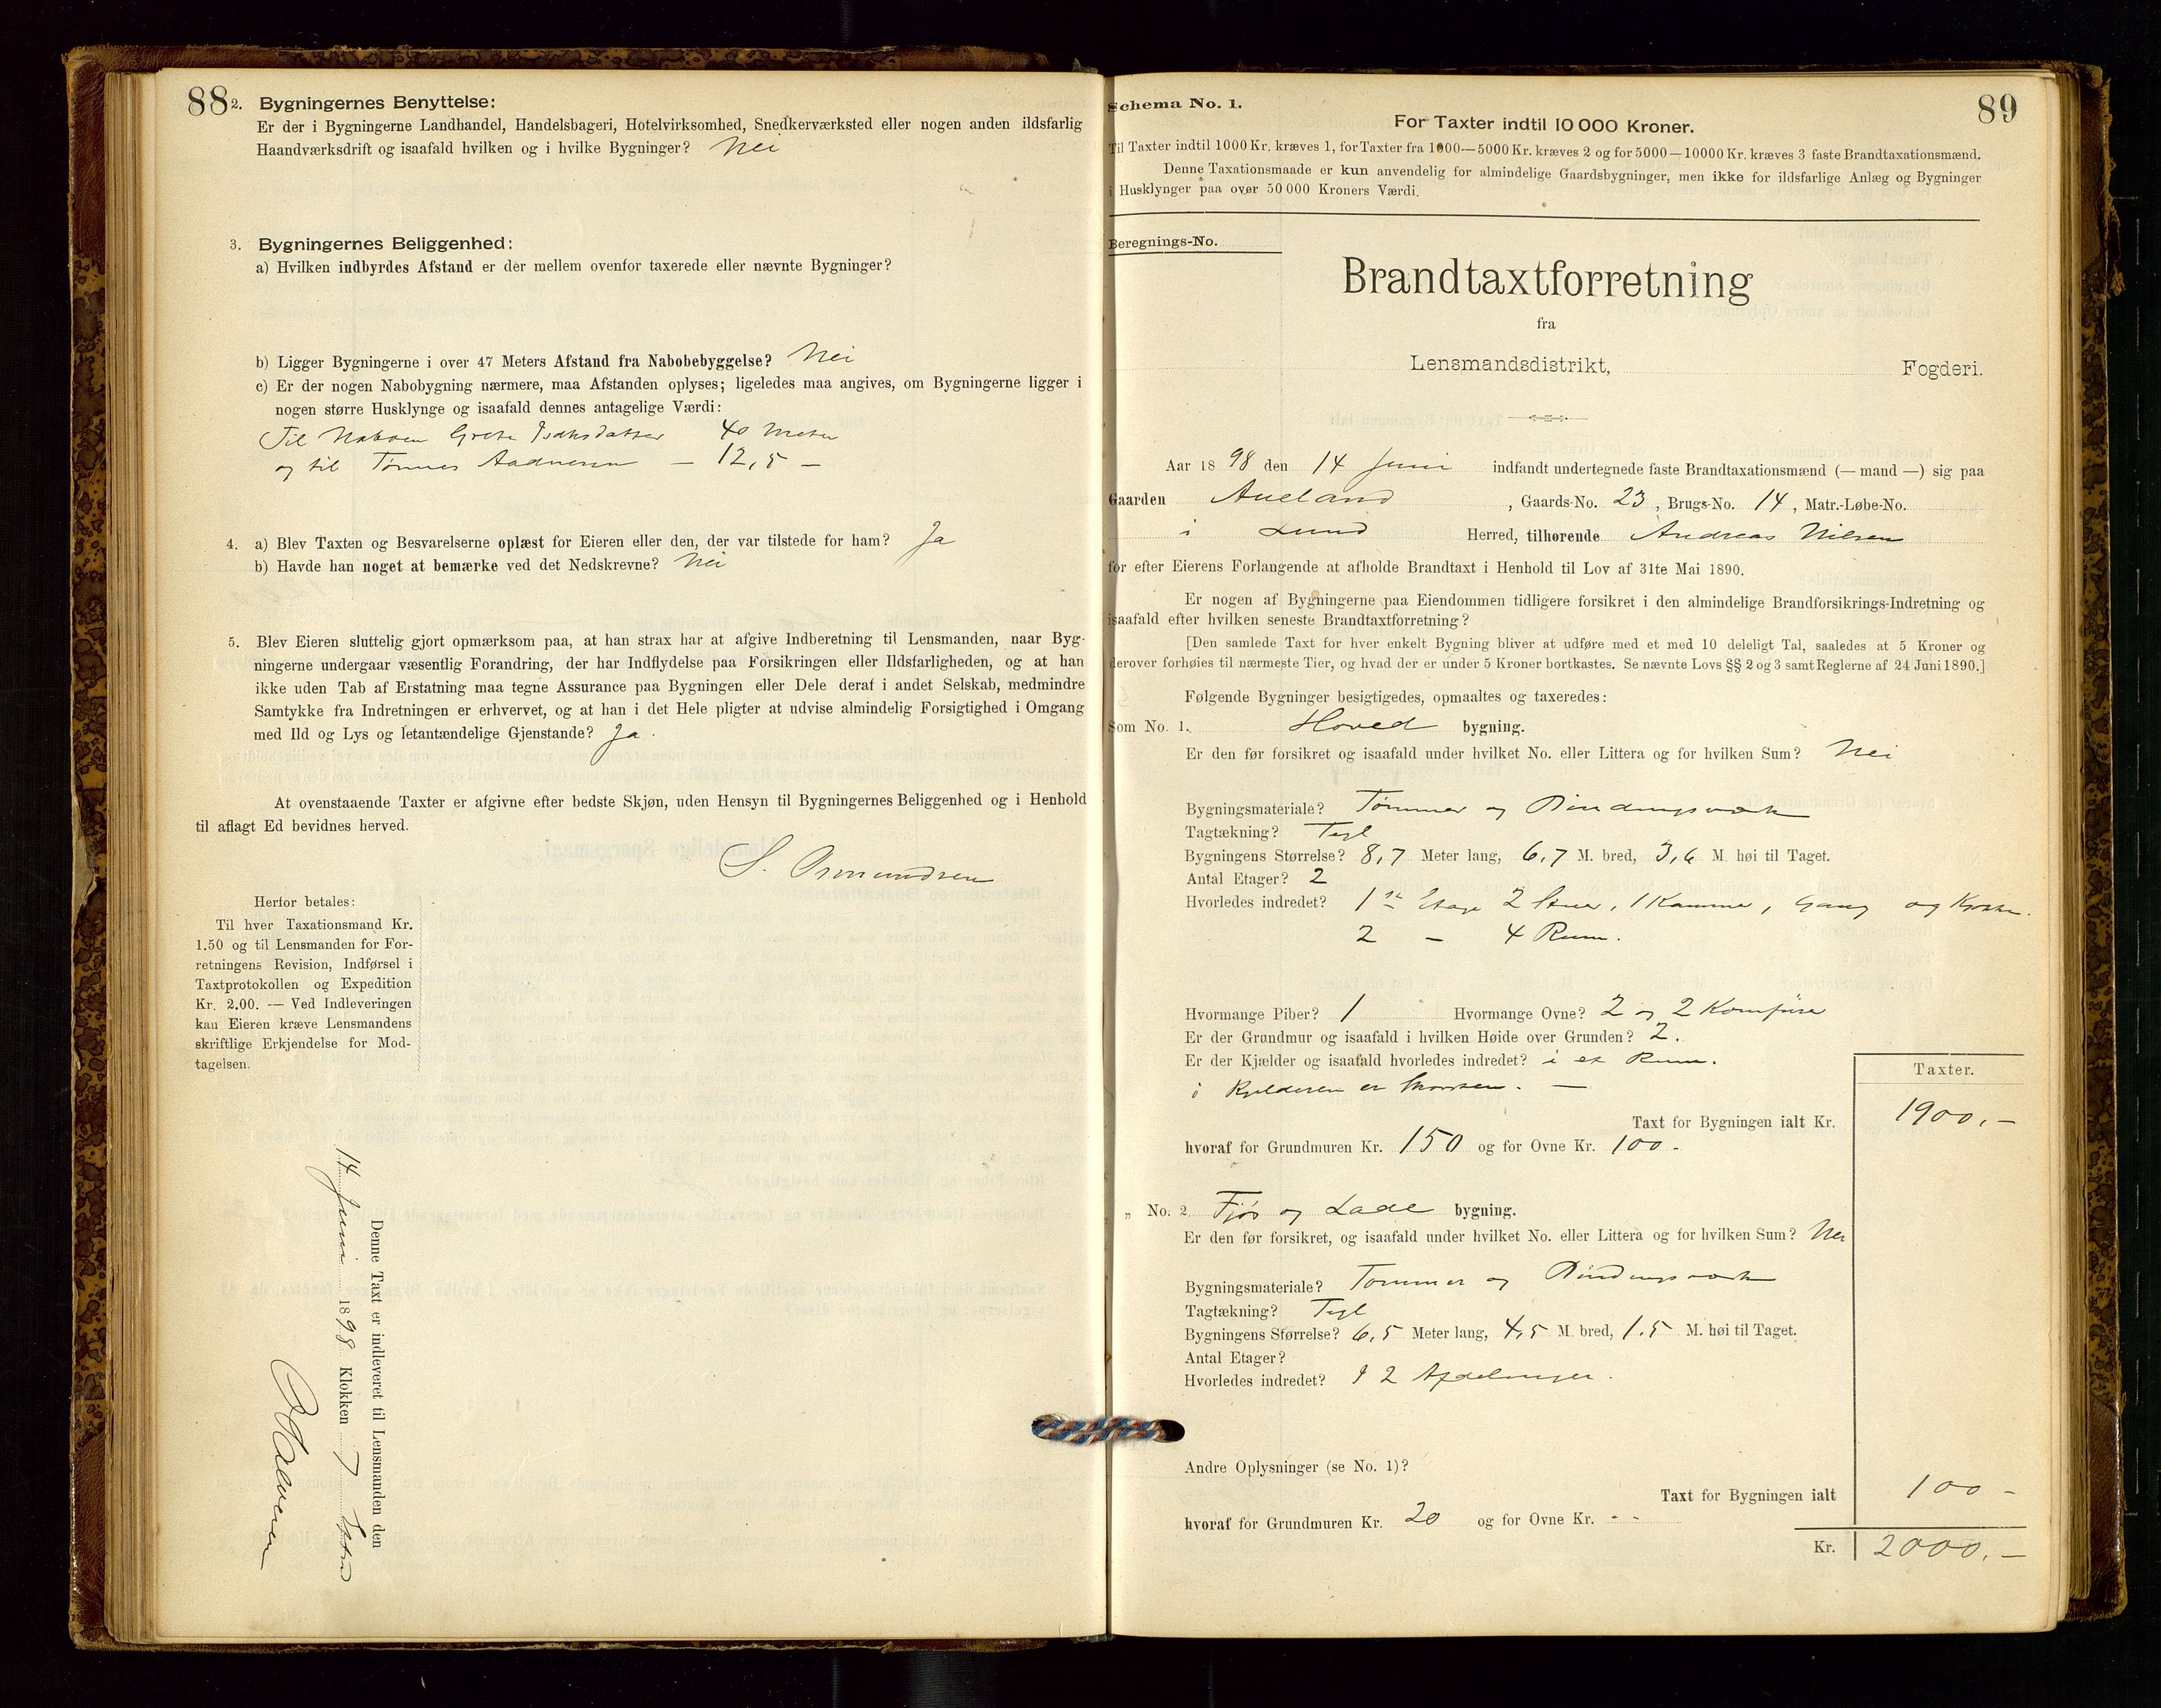 88
2. Bygningernes Benyttelse:
Er der i Bygningerne Landhandel, Handelsbageri, Hotelvirksomhed, Snedkerværksted eller nogen anden ildsfarlig
Haandværksdrift og isaafald hvilken og i hvilke Bygninger? Nei
3. Bygningernes Beliggenhed:
a) Hvilken indbyrdes Afstand er der mellem ovenfor taxerede eller nævnte Bygninger?
b) Ligger Bygningerne i over 47 Meters Afstand fra Nabobebyggelse? Nei
c) Er der nogen Nabobygning nærmere, maa Afstanden oplyses; ligeledes maa angives, om Bygningerne ligger i
nogen større Husklynge og isaafald dennes antagelige Værdi:
Til Naboen Grete Isaksdatter 40 Meter
og til Tønnes Aadnesen — 12,5 —
4. a) Blev Taxten og Besvarelserne oplæst for Eieren eller den, der var tilstede for ham? Ja
b) Havde han noget at bemærke ved det Nedskrevne? Nei
5. Blev Eieren sluttelig gjort opmærksom paa, at han strax har at afgive Indberetning til Lensmanden, naar Byg-
ningerne undergaar væsentlig Forandring, der har Indflydelse paa Forsikringen eller Ildsfarligheden, og at han
ikke uden Tab af Erstatning maa tegne Assurance paa Bygningen eller Dele deraf i andet Selskab, medmindre
Samtykke fra Indretningen er erhvervet, og at han i det Hele pligter at udvise almindelig Forsigtighed i Omgang
med Ild og Lys og letantændelige Gjenstande? Ja.
At ovenstaaende Taxter er afgivne efter bedste Skjøn, uden Hensyn til Bygningernes Beliggenhed og i Henhold
til aflagt Ed bevidnes herved.
S. Osmundsen
Herfor betales:
Til hver Taxationsmand Kr.
1.50 og til Lensmanden for For-
retningens Revision, Indførsel i
Taxtprotokollen og Expedition
Kr. 2.00. — Ved Indleveringen
kan Eieren kræve Lensmandens
skriftlige Erkjendelse for Mod-
tagelsen.
Denne Taxt er indleveret til Lensmanden den
14 Juni 1898 Klokken 7
Schema No. 1.
89
For Taxter indtil 10 000 Kroner.
Til Taxter indtil 1000 Kr. kræves 1, for Taxter fra 1000—5000 Kr. kræves 2 og for 5000—10000 Kr. kræves 3 faste Brandtaxationsmænd.
Denne Taxationsmaade er kun anvendelig for almindelige Gaardsbygninger, men ikke for ildsfarlige Anlæg og Bygninger
i Husklynger paa over 50 000 Kroners Værdi.
Beregnings-No.
Brandtaxtforretning
fra
Lensmandsdistrikt, Fogderi.
Aar 1898 den 14 Juni indfandt undertegnede faste Brandtaxationsmænd (— mand —) sig paa
Gaarden Aueland, Gaards-No. 23, Brugs-No. 14, Matr.-Løbe-No.
i Lund Herred, tilhørende Andreas Nilsen
for efter Eierens Forlangende at afholde Brandtaxt i Henhold til Lov af 31te Mai 1890.
Er nogen af Bygningerne paa Eiendommen tidligere forsikret i den almindelige Brandforsikrings-Indretning og
isaafald efter hvilken seneste Brandtaxtforretning?
[Den samlede Taxt for hver enkelt Bygning bliver at udføre med et med 10 deleligt Tal, saaledes at 5 Kroner og
derover forhøies til nærmeste Tier, og hvad der er under 5 Kroner bortkastes. Se nævnte Lovs §§ 2 og 3 samt Reglerne af 24 Juni 1890.]
Følgende Bygninger besigtigedes, opmaaltes og taxeredes:
Som No. 1. Hoved bygning.
Er den før forsikret og isaafald under hvilket No. eller Littera og for hvilken Sum? Nei
Bygningsmateriale? Tømmer og Bindingsværk
Tagtækning? Tegl
Bygningens Størrelse? 8,7 Meter lang, 6,7 M. bred, 3,6 M. høi til Taget.
Antal Etager? 2
Hvorledes indredet? 1ste Etage 2 Stuer, 1 Kammer, Gang og Kjøkken.
2 — 4 Rum.
Hvormange Piber? 1 Hvormange Ovne? 2 og 2 Komfûre
Er der Grundmur og isaafald i hvilken Høide over Grunden? 2.
Er der Kjælder og isaafald hvorledes indredet? i et Rum.
i Kjelderen er Skorsten. —
Taxter.
Taxt for Bygningen ialt Kr. 1900,—
hvoraf for Grundmuren Kr. 150 og for Ovne Kr. 100-
„ No. 2 Fjøs og Lade bygning.
Er den før forsikret, og isaafald under hvilket No. eller Littera og for hvilken Sum? Nei
Bygningsmateriale? Tømmer og Bindingsværk
Tagtækning? Tegl
Bygningens Størrelse? 6,5 Meter lang, 4,5 M. bred, 1.5 M. høi til Taget.
Antal Etager?
Hvorledes indredet? I 2 Afdelinger.
Andre Oplysninger (se No. 1)?
Taxt for Bygningen ialt 100 -
hvoraf for Grundmuren Kr. 20 og for Ovne Kr. - -
Kr. 2000,—